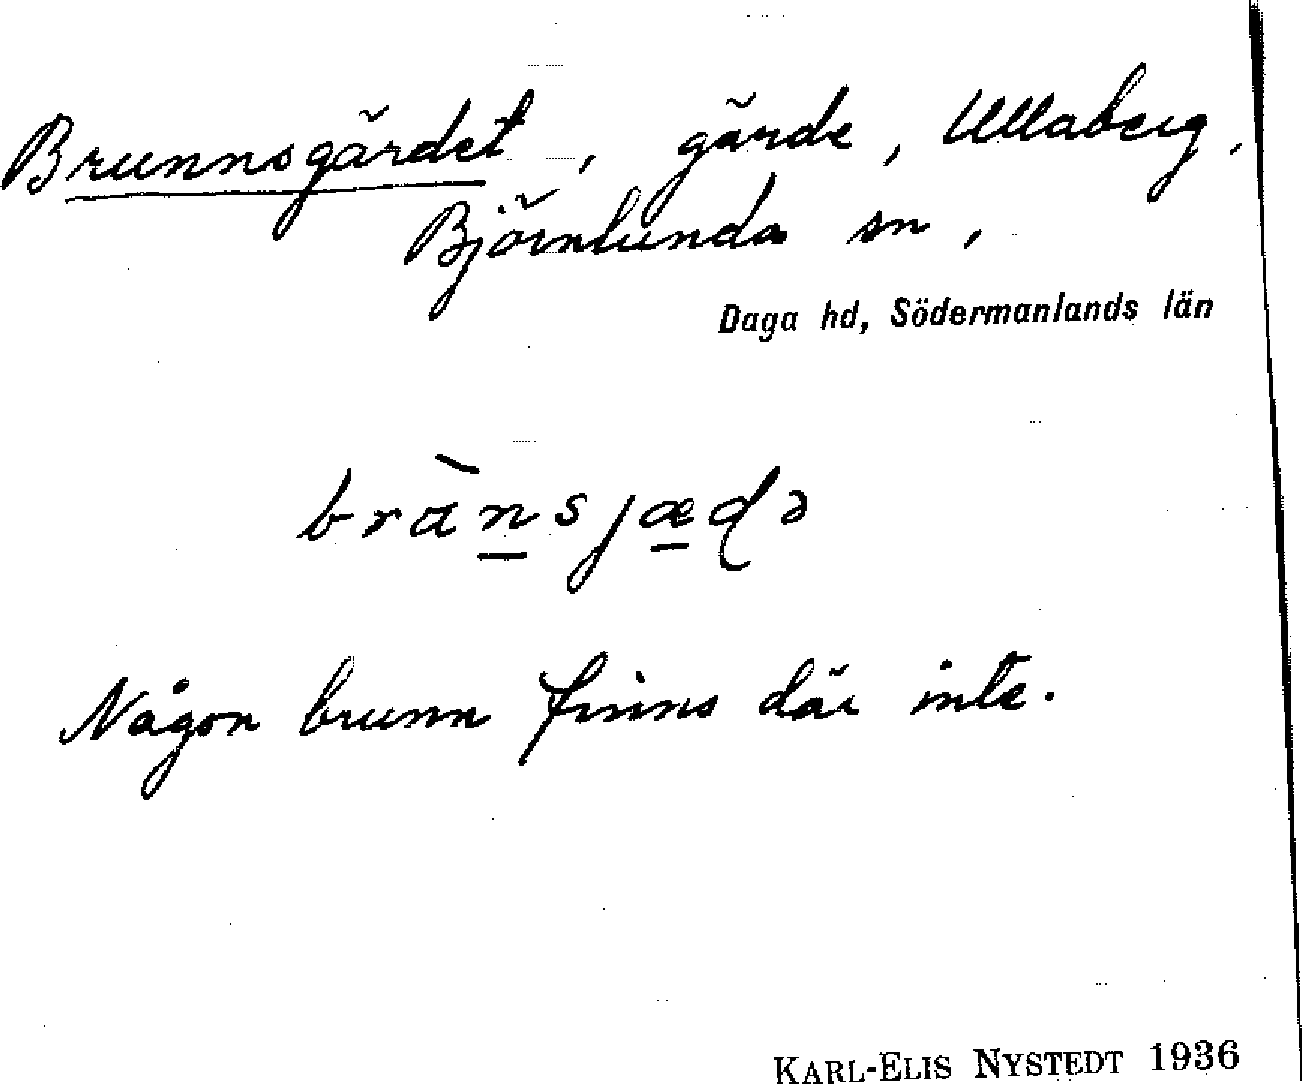 Brunnsgärdet, gärde, Ullaberg,
Björnlunda sn,
Daga hd, Södermanlands län
bràn̲sjæ̲ɖə
Någon brunn finns där inte.
KARL-ELIS NYSTEDT 1936